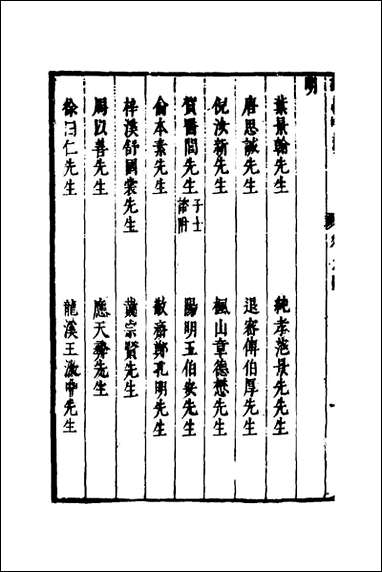 明
葉景翰先生　純孝范景先先生
唐思誠先生　退密傳伯厚先生
倪汝新先生　楓山章德懋先生
賀醫閭先生子士諮附　陽明王伯安先生
俞本素先生　敬齋鄭孔明先生
梓溪舒國裳先生　黃宗賢先生
周以善先生　應天彝先生
徐曰仁先生　龍溪王汝中先生